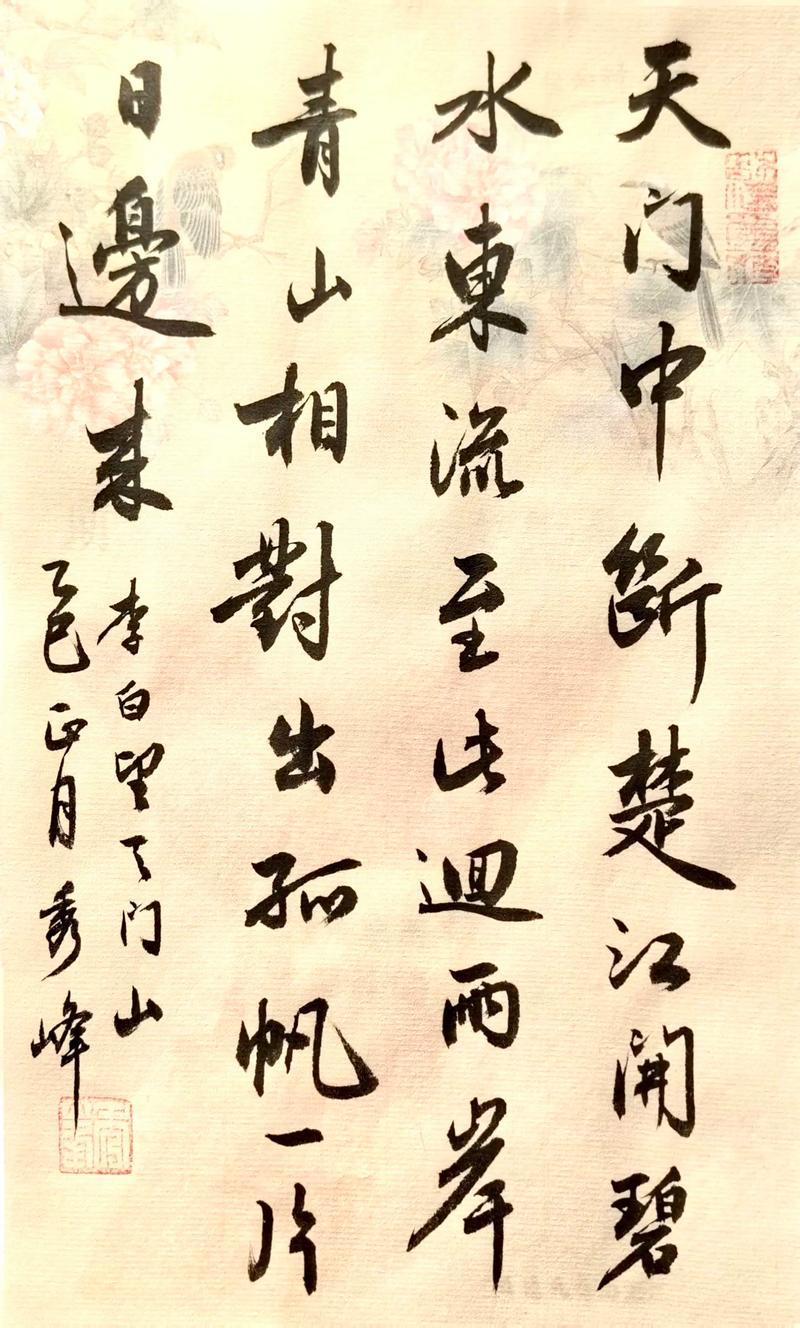 天门中斷楚江開碧
水東流至此迴兩岸
青山相對出孤帆一片
日邊来
李白望天门山
乙巳正月秀峰